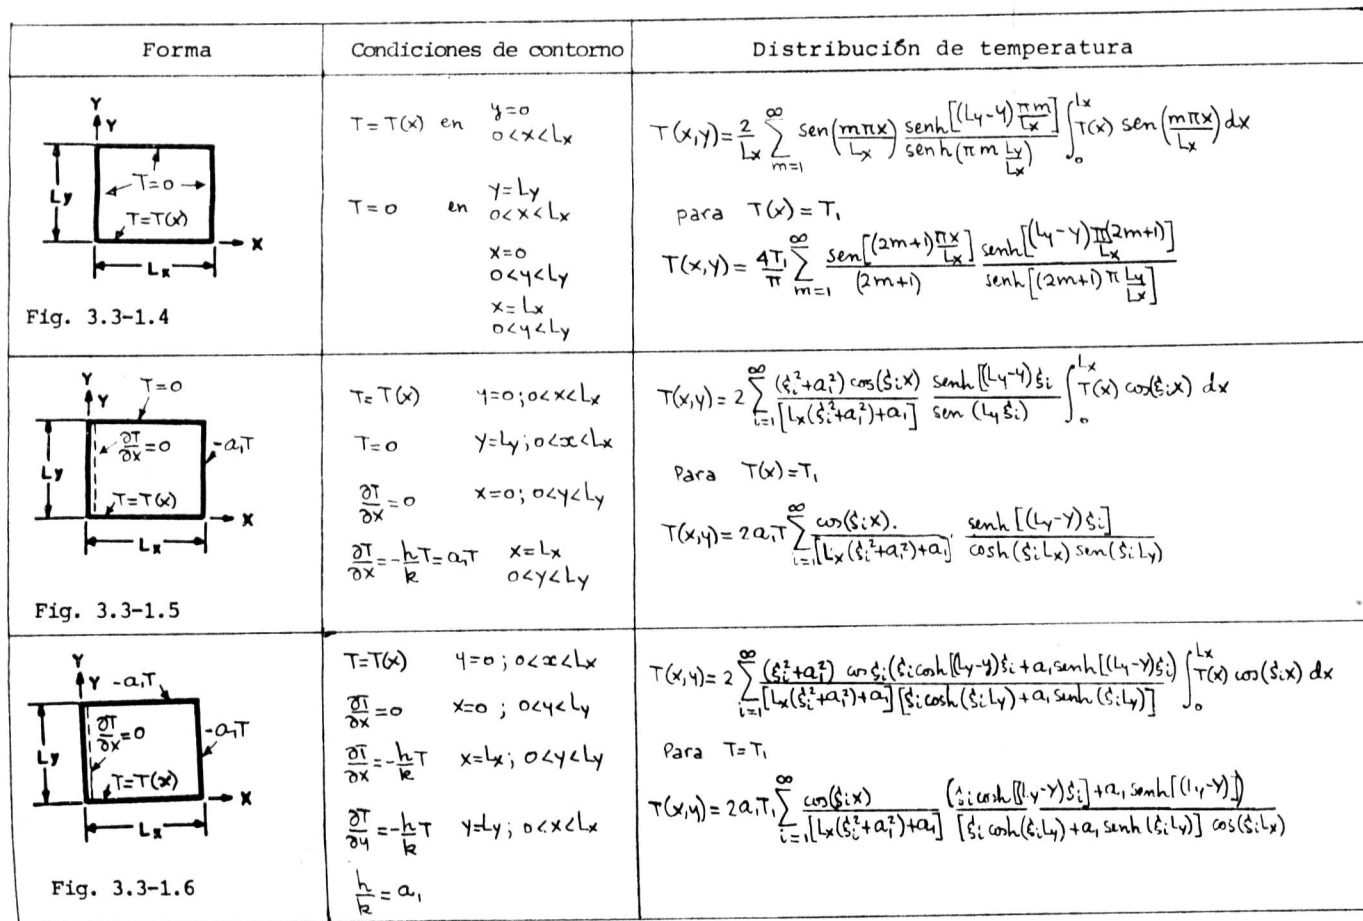 Forma
Condiciones de contorno
Distribución de temperatura
Y
Y
Ly
T=0
T=T(x)
X
Lx
Fig. 3.3-1.4
T=T(x) en y=0
0<x<Lx
T=0 en y=Ly
0<x<Lx
x=0
0<y<Ly
x=Lx
0<y<Ly
T(x,y)= 2/Lx ∑_{m=1}^{∞} sen(mπx/Lx) senh[(Ly-y) πm/Lx] / senh(πm Ly/Lx) ∫_0^{Lx} T(x) sen(mπx/Lx) dx
para T(x)=T₁
T(x,y)= 4T₁/π ∑_{m=1}^{∞} sen[(2m+1) πx/Lx] / (2m+1) senh[(Ly-y) π/Lx (2m+1)] / senh[(2m+1) π Ly/Lx]
Y
Y
T=0
Ly
∂T/∂x=0
-a₁T
T=T(x)
X
Lx
Fig. 3.3-1.5
T=T(x) y=0; 0<x<Lx
T=0 y=Ly; 0<x<Lx
∂T/∂x=0 x=0; 0<y<Ly
∂T/∂x=-h/k T=a₁T x=Lx
0<y<Ly
T(x,y)= 2 ∑_{i=1}^{∞} (ξi²+a₁²) cos(ξix) / [Lx(ξi²+a₁²)+a₁] senh[(Ly-y)ξi / sen (Lyξi) ∫_0^{Lx} T(x) cos(ξix) dx
Para T(x)=T₁
T(x,y)= 2a₁T ∑_{i=1}^{∞} cos(ξix). / [Lx(ξi²+a₁²)+a₁] . senh[(Ly-y)ξi] / cosh(ξiLx) sen(ξiLy)
Y
Y
-a₁T
Ly
∂T/∂x=0
-a₁T
T=T(x)
X
Lx
Fig. 3.3-1.6
T=T(x) y=0; 0<x<Lx
∂T/∂x=0 x=0; 0<y<Ly
∂T/∂x=-h/k T x=Lx; 0<y<Ly
∂T/∂y=-h/k T y=Ly; 0<x<Lx
h/k=a₁
T(x,y)= 2 ∑_{i=1}^{∞} (ξi²+a₁²) cosξi(ξicosh[(Ly-y)ξi+a₁senh[(Ly-y)ξi) / [Lx(ξi²+a₁²)+a₁][ξicosh(ξiLy)+a₁senh(ξiLy)] ∫_0^{Lx} T(x) cos(ξix) dx
Para T=T₁
T(x,y)= 2a₁T₁ ∑_{i=1}^{∞} cos(ξix) / [Lx(ξi²+a₁²)+a₁] (ξicosh[(Ly-y)ξi]+a₁senh[(Ly-y)]) / [ξi cosh(ξiLy)+a₁ senh(ξiLy)] cos(ξiLx)